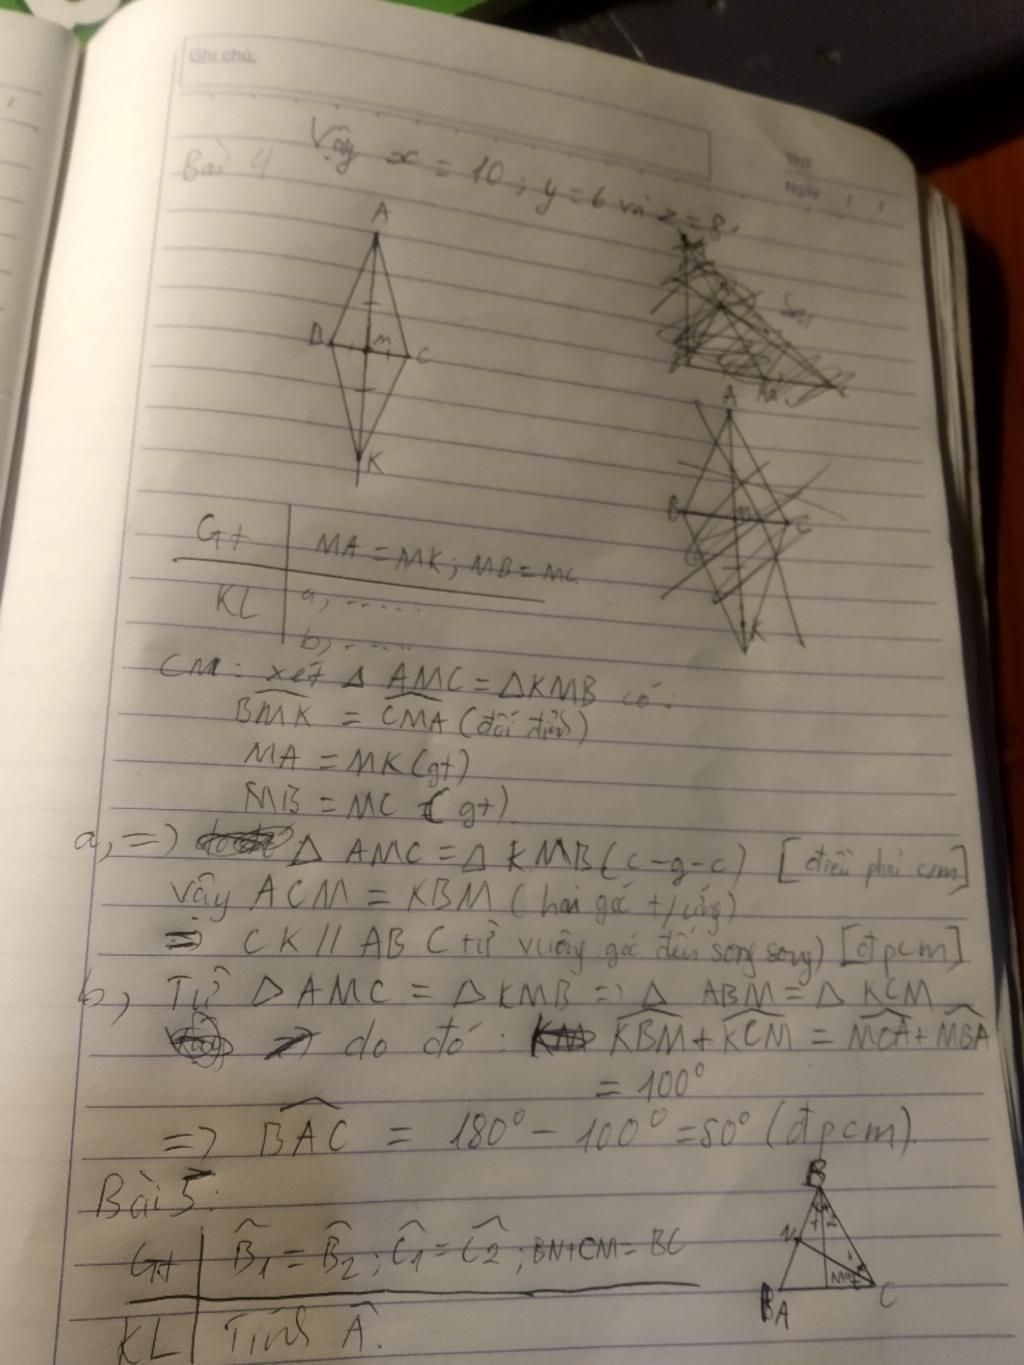 Ghi chú:
Thứ
Ngày
Vậy x = 10 ; y = 6 và z = 8.
Bài 4
A
B
M
C
K
A
B
M
C
K
Gt
MA = MK ; MB = MC
KL
a, ......
b, .....
CM: xét Δ AMC = Δ KMB có:
BMK = CMA (đối đỉnh)
MA = MK (gt)
MB = MC (gt)
a, => Δ AMC = Δ KMB (c-g-c) [điều phải c/m]
Vậy ACM = KBM (hai góc t/ứng)
=> CK // AB (từ vuông góc đến song song) [đpcm]
b, Từ Δ AMC = Δ KMB => Δ ABM = Δ KCM
do đó: KBM + KCM = MCA + MBA
= 100°
=> BAC = 180° - 100° = 80° (đpcm).
Bài 5:
B
1 2
N
M
B A
C
Gt
B1 = B2 ; C1 = C2 ; BN+CM = BC
KL
Tính A.